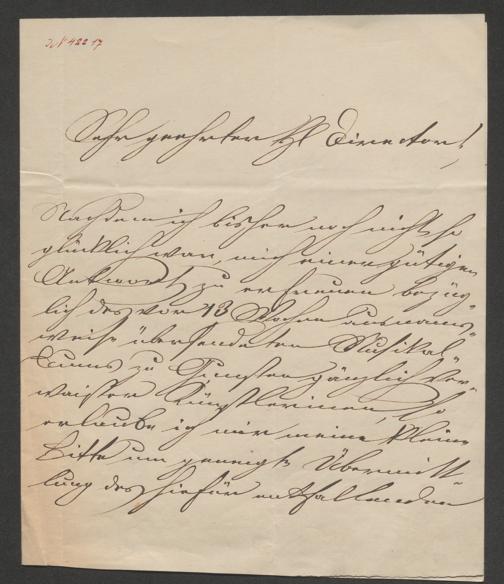 IN 42217
Sehr geehrter H Director!
Nachdem ich bisher noch nicht so
glücklich war, mich einer gütigen
Antwort zu erfreuen bezüg„
lich des vor 13 Wochen
weise übersendeten Musikal„
zu Gunsten gänzlich ver„
waister Künstlerinen, so
erlaube ich mir meine kleine
Bitte um geneigte Übermitt„
lung des hiefür entfallenden